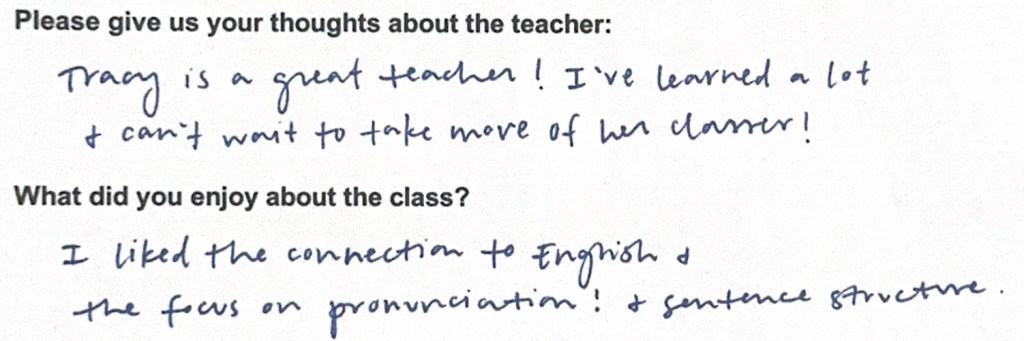 Please give us your thoughts about the teacher:
Tracy is a great teacher! I've learned a lot
& can't wait to take more of her classes!
What did you enjoy about the class?
I liked the connection to English &
the focus on pronunciation! & sentence structure.